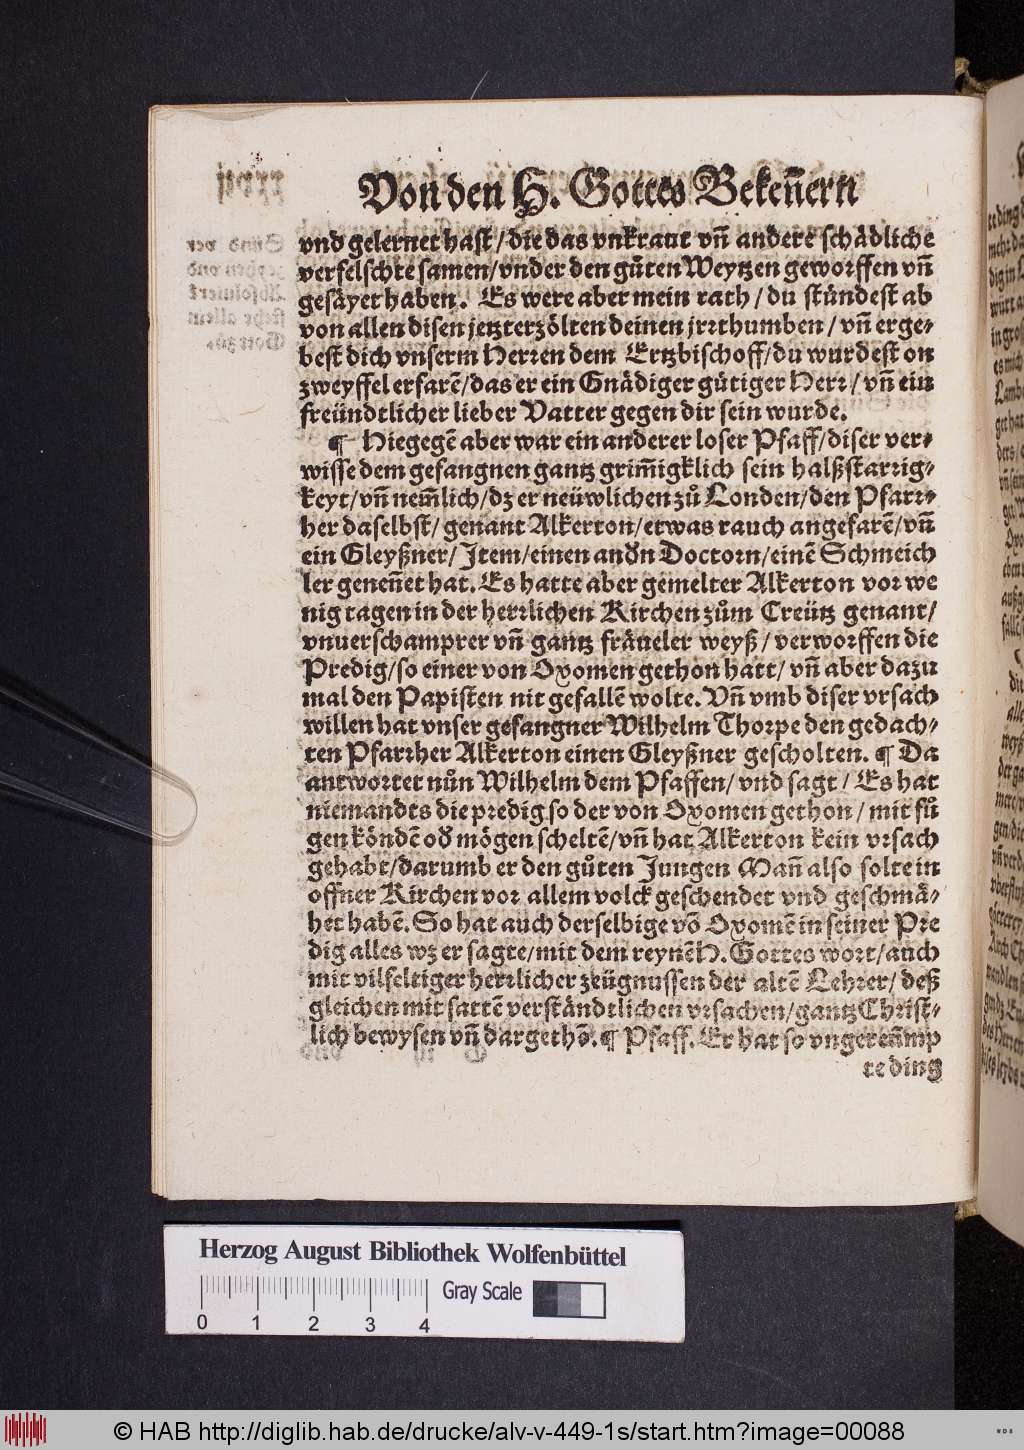 Von den H. Gottes Bekeñern
vnd gelernet hast / die das vnkraut vñ andere schädliche
verfelschte samen / vnder den gůten Weytzen geworffen vñ
gesäyet haben. Es were aber mein rath / du stündest ab
von allen disen jetzterzölten deinen jrrthumben / vñ erge⸗
best dich vnserm Herren dem Ertzbischoff / du wurdest on
zweyffel erfarē / das er ein Gnädiger gütiger Herr / vñ ein
freündtlicher lieber Vatter gegen dir sein wurde.
¶ Hiegegē aber war ein anderer loser Pfaff / diser ver⸗
wisse dem gefangnen gantz grim̃igklich sein halßstarrig⸗
keyt / vñ nem̃lich / dz er neüwlichen zů Londen / den Pfarr⸗
her daselbst / genant Alkerton / etwas rauch angefarē / vñ
ein Gleyßner / Item / einen andn Doctorn / einē Schmeich
ler geneñet hat. Es hatte aber gemelter Alkerton vor we
nig tagen in der herrlichen Kirchen zům Creütz genant /
vnuerschampter vñ gantz fräueler weyß / verworffen die
Predig / so einer von Oxomen gethon hatt / vñ aber dazu
mal den Papisten nit gefallē wolte. Vñ vmb diser vrsach
willen hat vnser gefangner Wilhelm Thorpe den gedach⸗
ten Pfarrher Alkerton einen Gleyßner gescholten. ¶ Da
antwortet nůn Wilhelm dem Pfaffen / vnd sagt / Es hat
niemandts die predig so der von Oxomen gethon / mit fů
gen köndē od mögen scheltē / vñ hat Alkerton kein vrsach
gehabt / darumb er den gůten Jungen Mañ also solte in
offner Kirchen vor allem volck geschendet vnd geschmä⸗
het habē. So hat auch derselbige vō Oxomē in seiner Pre
dig alles wz er sagte / mit dem reynē H. Gottes wort / auch
mit vilfeltiger herrlicher zeügnussen der altē Lehrer / deß
gleichen mit sattē verständtlichen vrsachen / gantz Christ⸗
lich bewysen vñ dargethō. ¶ Pfaff. Er hat so vngereũmp
te ding
Herzog August Bibliothek Wolfenbüttel
Gray Scale
0 1 2 3 4
© HAB http://diglib.hab.de/drucke/alv-v-449-1s/start.htm?image=00088